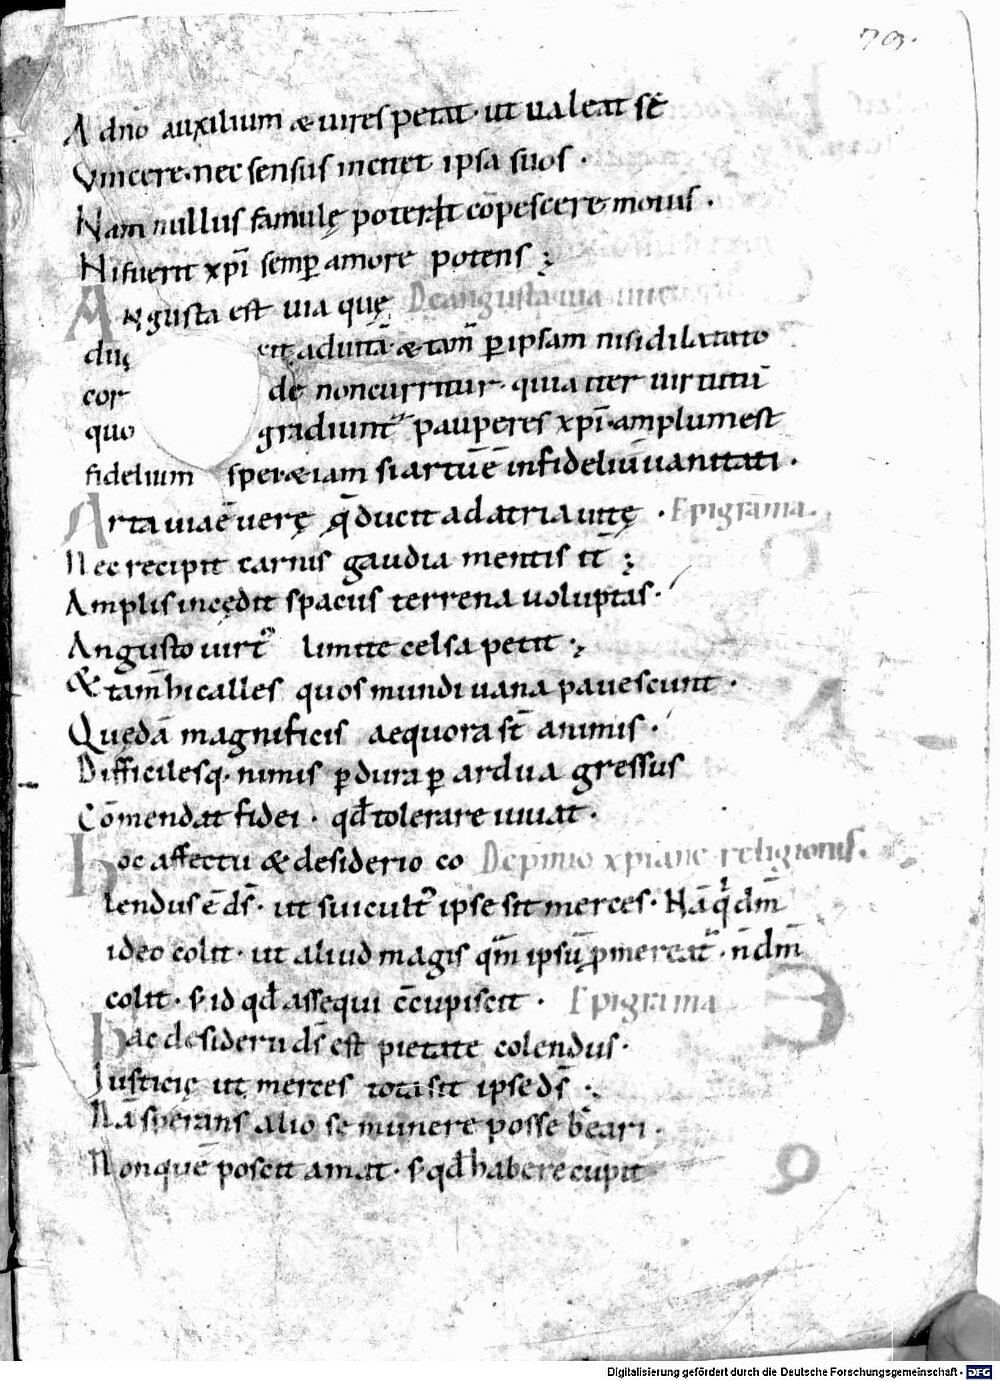 79.
A dn̄o auxilium & uires petat · ut ualeat sē
Vincere · nec sensus incitet ipsa suos ·
Nam nullus famulę poterit cōpescere motus ·
Ni fuerit xp̄i semp̄ amore potens ;
Angusta est uia quę De angusta uia
ducit ad uitā · & tam̄ p̄ ipsam nisi dilatato
cor de non curritur · quia iter uirtutū
quo gradiunt᷑ pauperes xp̄i · amplum est
fidelium spe · & iam si artū ē infideliū uanitati ·
Arta uia ē uerę q̄ ducit ad atria uitę · Epigrāma ·
Nec recipit carnis gaudia mentis it̄ ;
Amplis incędit spaciis terrena uoluptas ·
Angusto uirt᷒ limite celsa petit ;
& tam̄ hi calles quos mundi uana pauescunt ·
Quędā magnificis aequora st̄ animis ·
Difficilesq · nimis p̄ dura p̄ ardua gressus
Cōmendat fidei · qđ tolerare iuuat ·
Hoc affectu & desiderio co De p̄mio xp̄iane religionis ·
lendus ē ds̄ · ut sui cult᷑ ipse sit merces · Nā q̄ dm̄
ideo colit · ut aliud magis qm̄ ipsū p̄mereat᷑ · n̄ dm̄
colit · s · id qđ assequi c̄cupiscit · Epigrama
Hac desiderii ds̄ est pietate colendus ·
Iusticię ut merces tota sit ipse ds̄ ;
Nā sperans alio se munere posse beari ·
Non quē poscit amat · s · qđ habere cupit
Digitalisierung gefördert durch die Deutsche Forschungsgemeinschaft - DFG